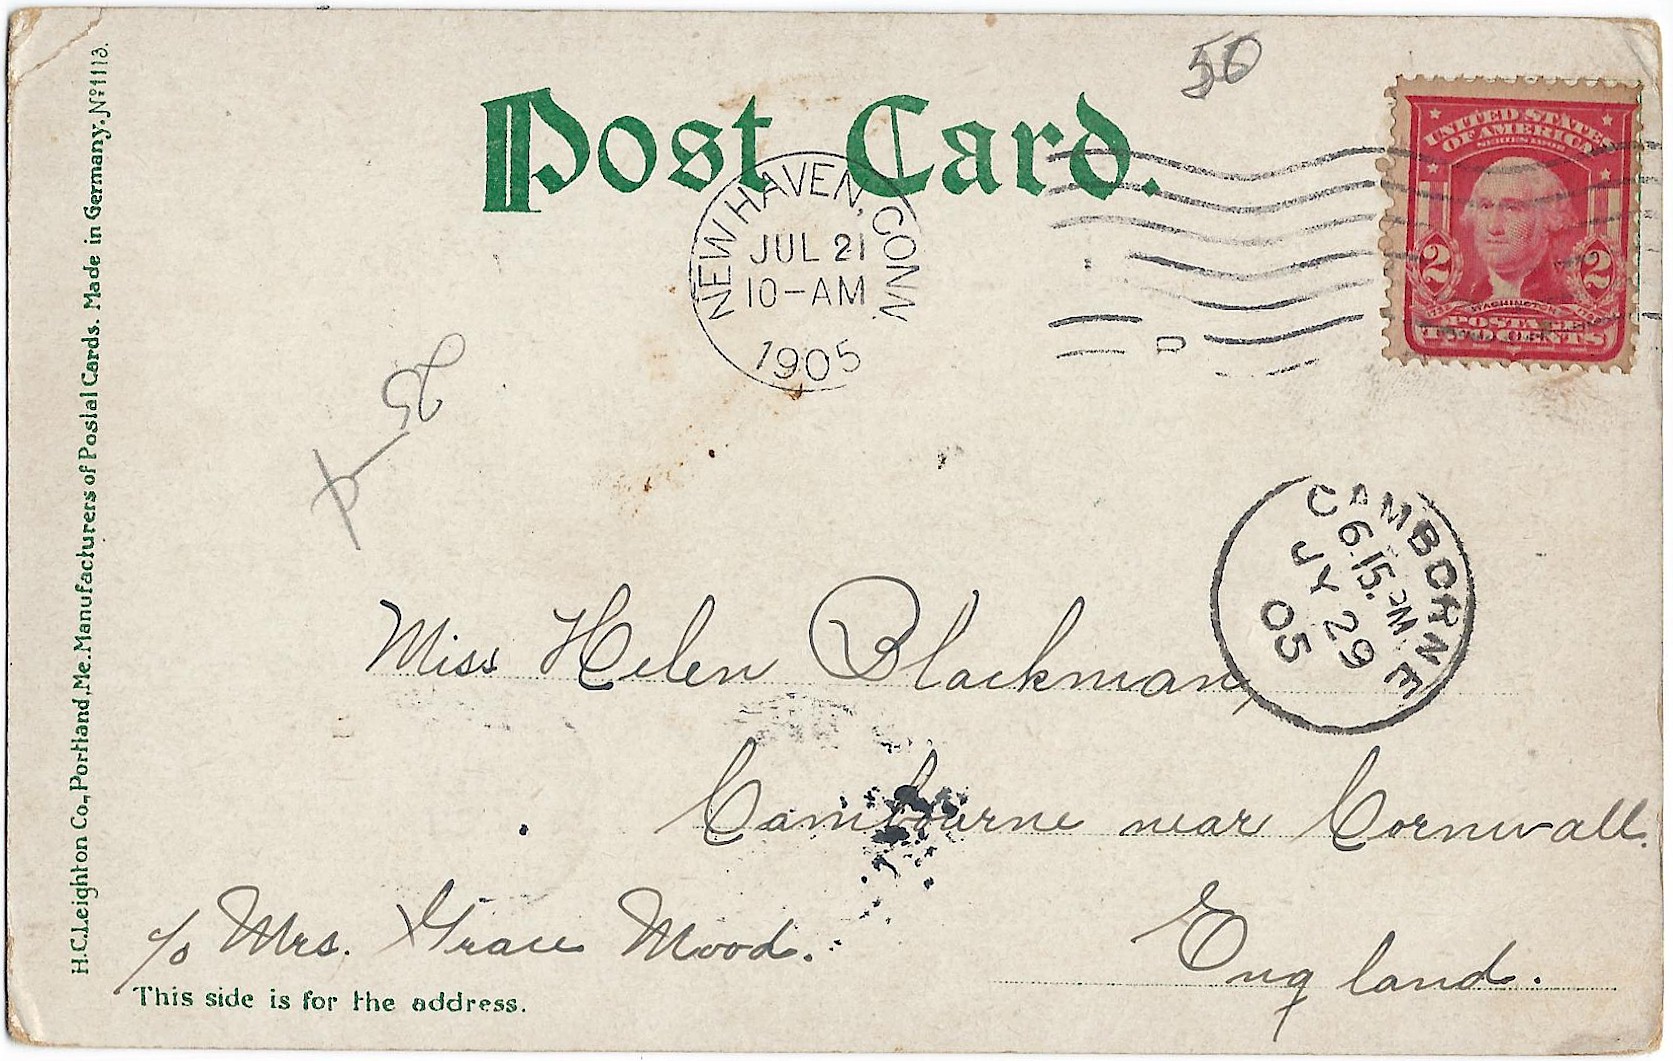 50
Post Card.
UNITED STATES
OF AMERICA
SERIES 1902
2 2
WASHINGTON
POSTAGE
TWO CENTS
NEW HAVEN, CONN.
JUL 21
10-AM
1905
D
CAMBORNE
6.15.PM
JY 29
05
Miss Helen Blackman,
Cambourne near Cornwall.
c/o Mrs. Grace Mood.
England.
This side is for the address.
H.C.Leighton Co., Portland, Me. Manufacturers of Postal Cards. Made in Germany. No 1113.